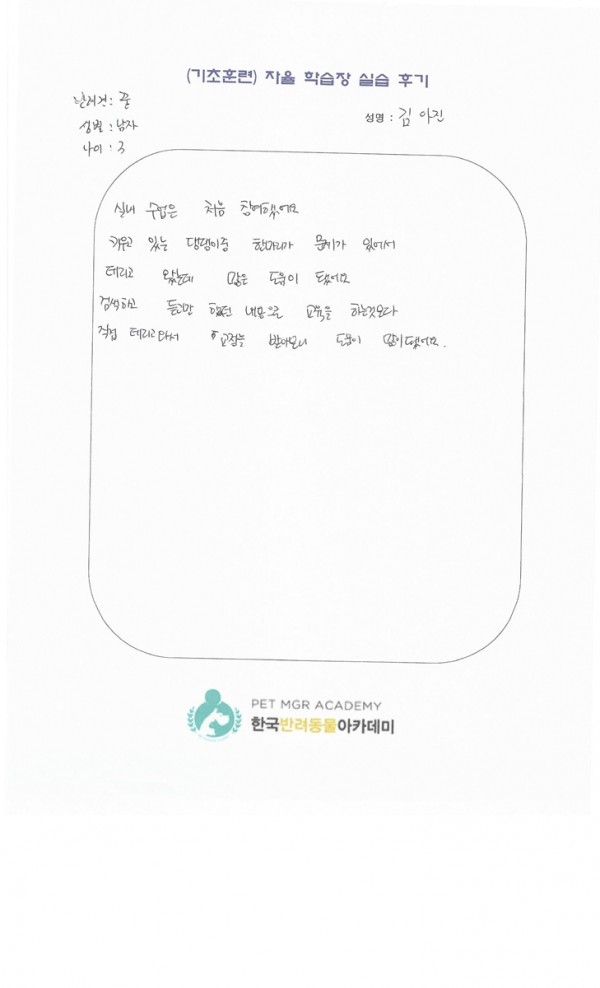 (기초훈련) 자율 학습장 실습 후기
반려견 : 뿐
성별 : 남자
나이 : 3
성명 : 김 아진
실내 수업은 처음 참여했어요
키우고 있는 댕댕이중 한마리가 문제가 있어서
데리고 왔는데 많은 도움이 됐어요
검색하고 듣고만 했던 내용으로 교육을 하는것보다
직접 데리고와서 교정을 받아보니 도움이 많이됐어요.
PET MGR ACADEMY
한국반려동물아카데미